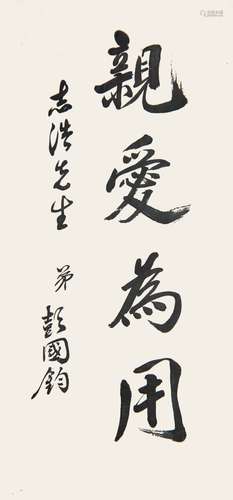 親愛為用
志浩先生
弟 彭國鈞